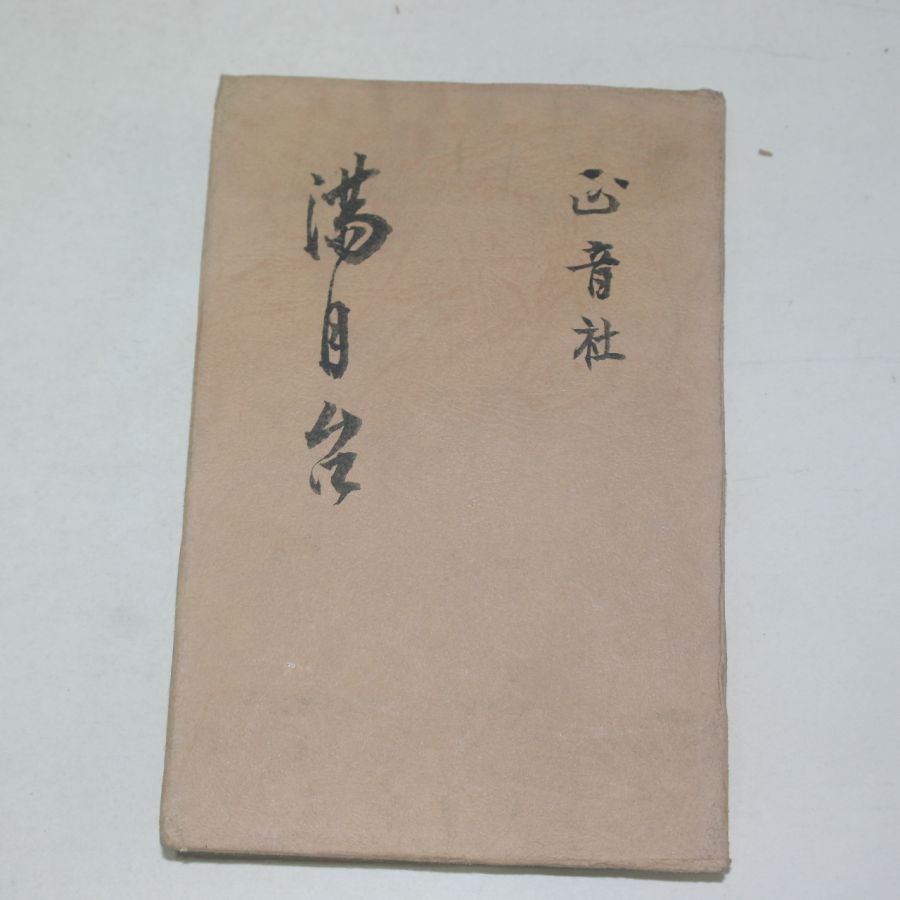 正音社
満月台